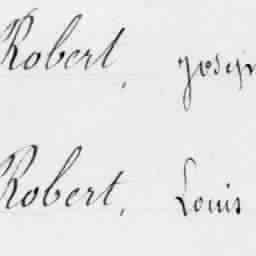 Robert, Joseph
Robert, Louis